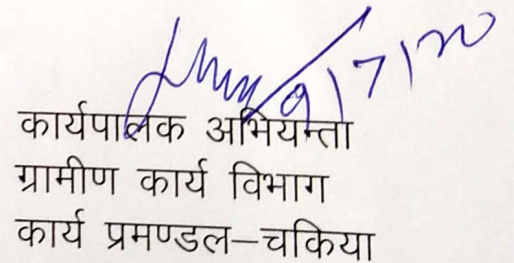 9/7/20
कार्यपालक अभियन्ता
ग्रामीण कार्य विभाग
कार्य प्रमण्डल–चकिया